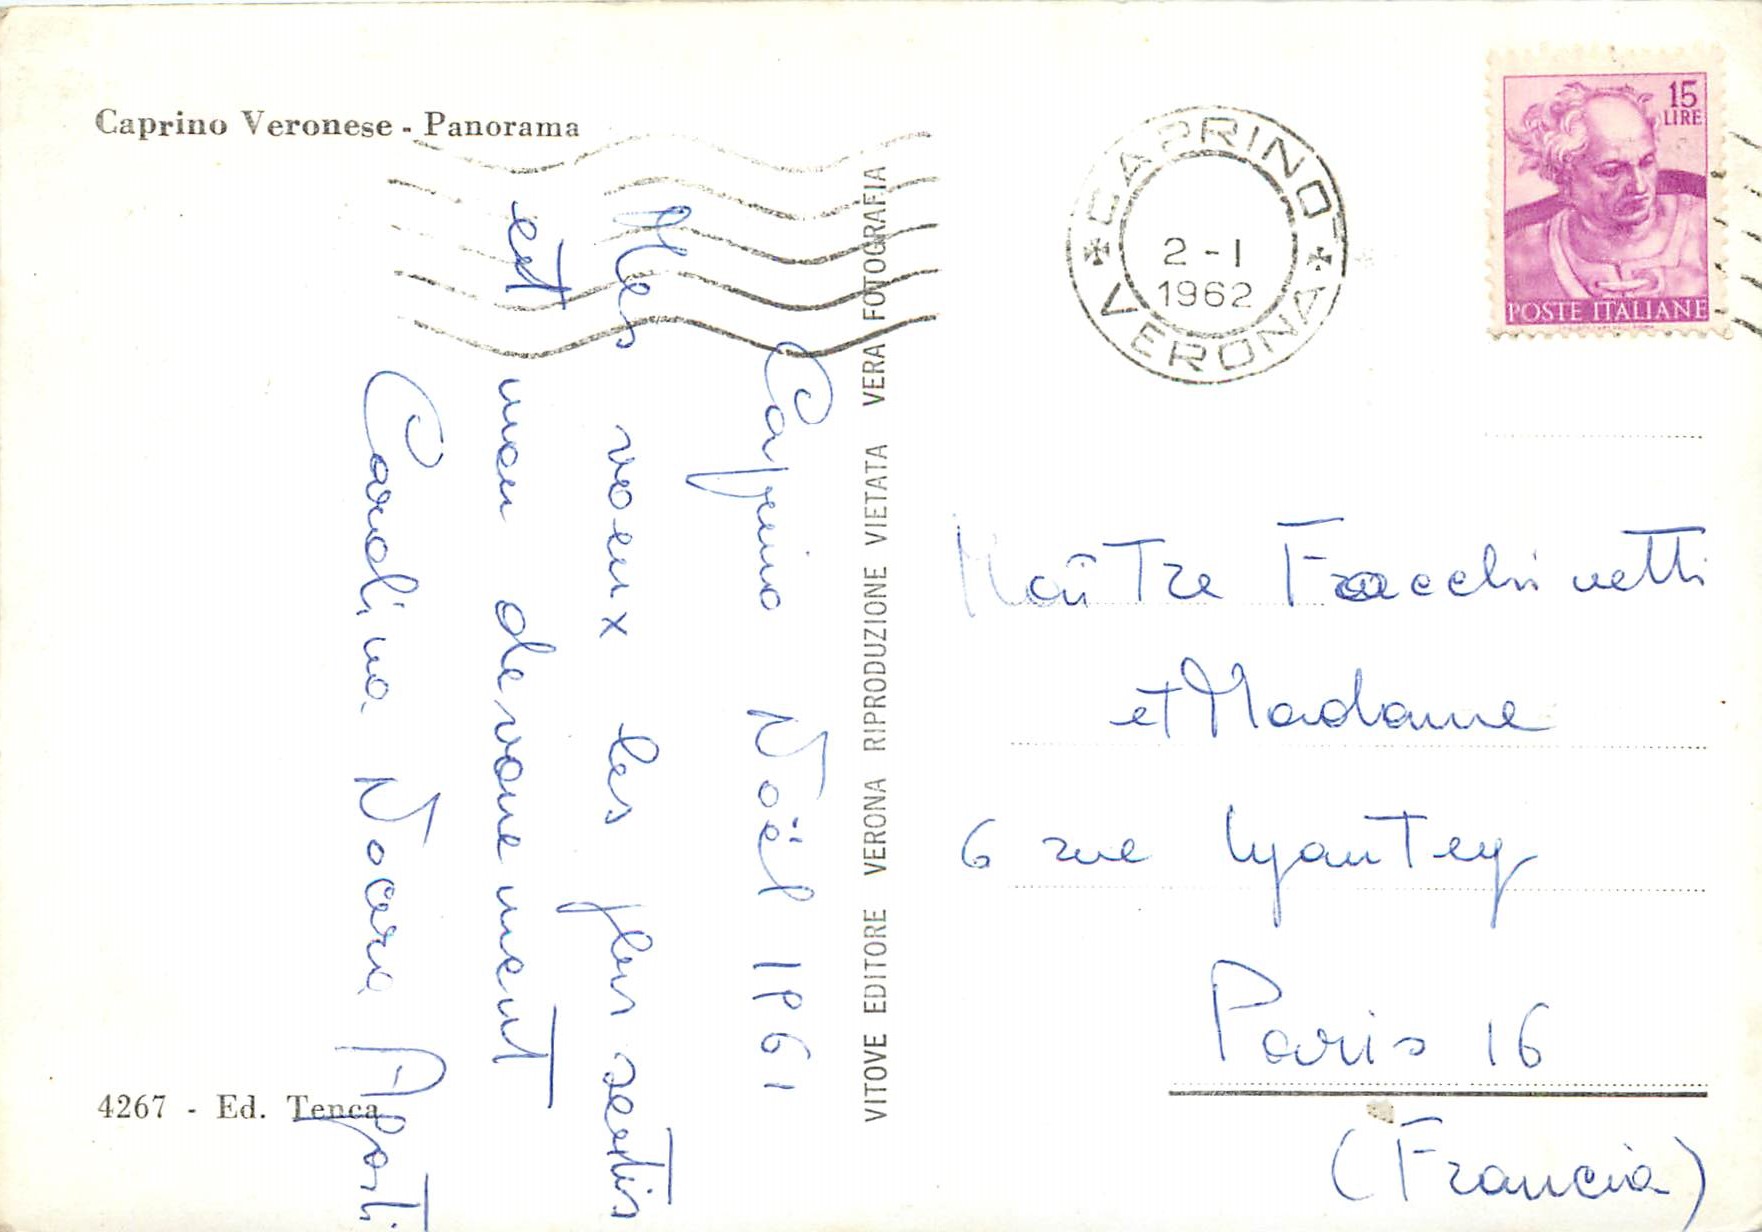 Caprino Veronese - Panorama
Caprino Noël 1961
Mes voeux les plus sentis
et mon dévouement
Carolina Nocera Aposti
4267 - Ed. Tenca
VITOVE EDITORE VERONA RIPRODUZIONE VIETATA VERA FOTOGRAFIA
CAPRINO
2 - 1
1962
VERONA
15
LIRE
POSTE ITALIANE
Maître Facchinetti
et Madame
6 rue Lyautey
Paris 16
(Francia)